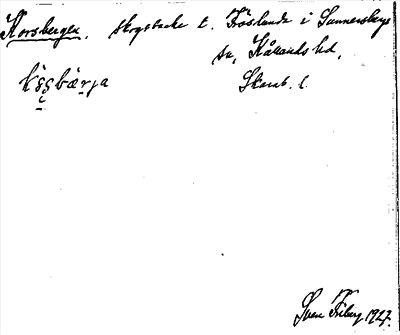 Korsbergen, skogsbacke t. Fröslunda i Sunnersbergs
sn, Kållands hd,
Skarab. l.
kɔ̀ṣbæ̀rja
Sven Fiberg 1927.